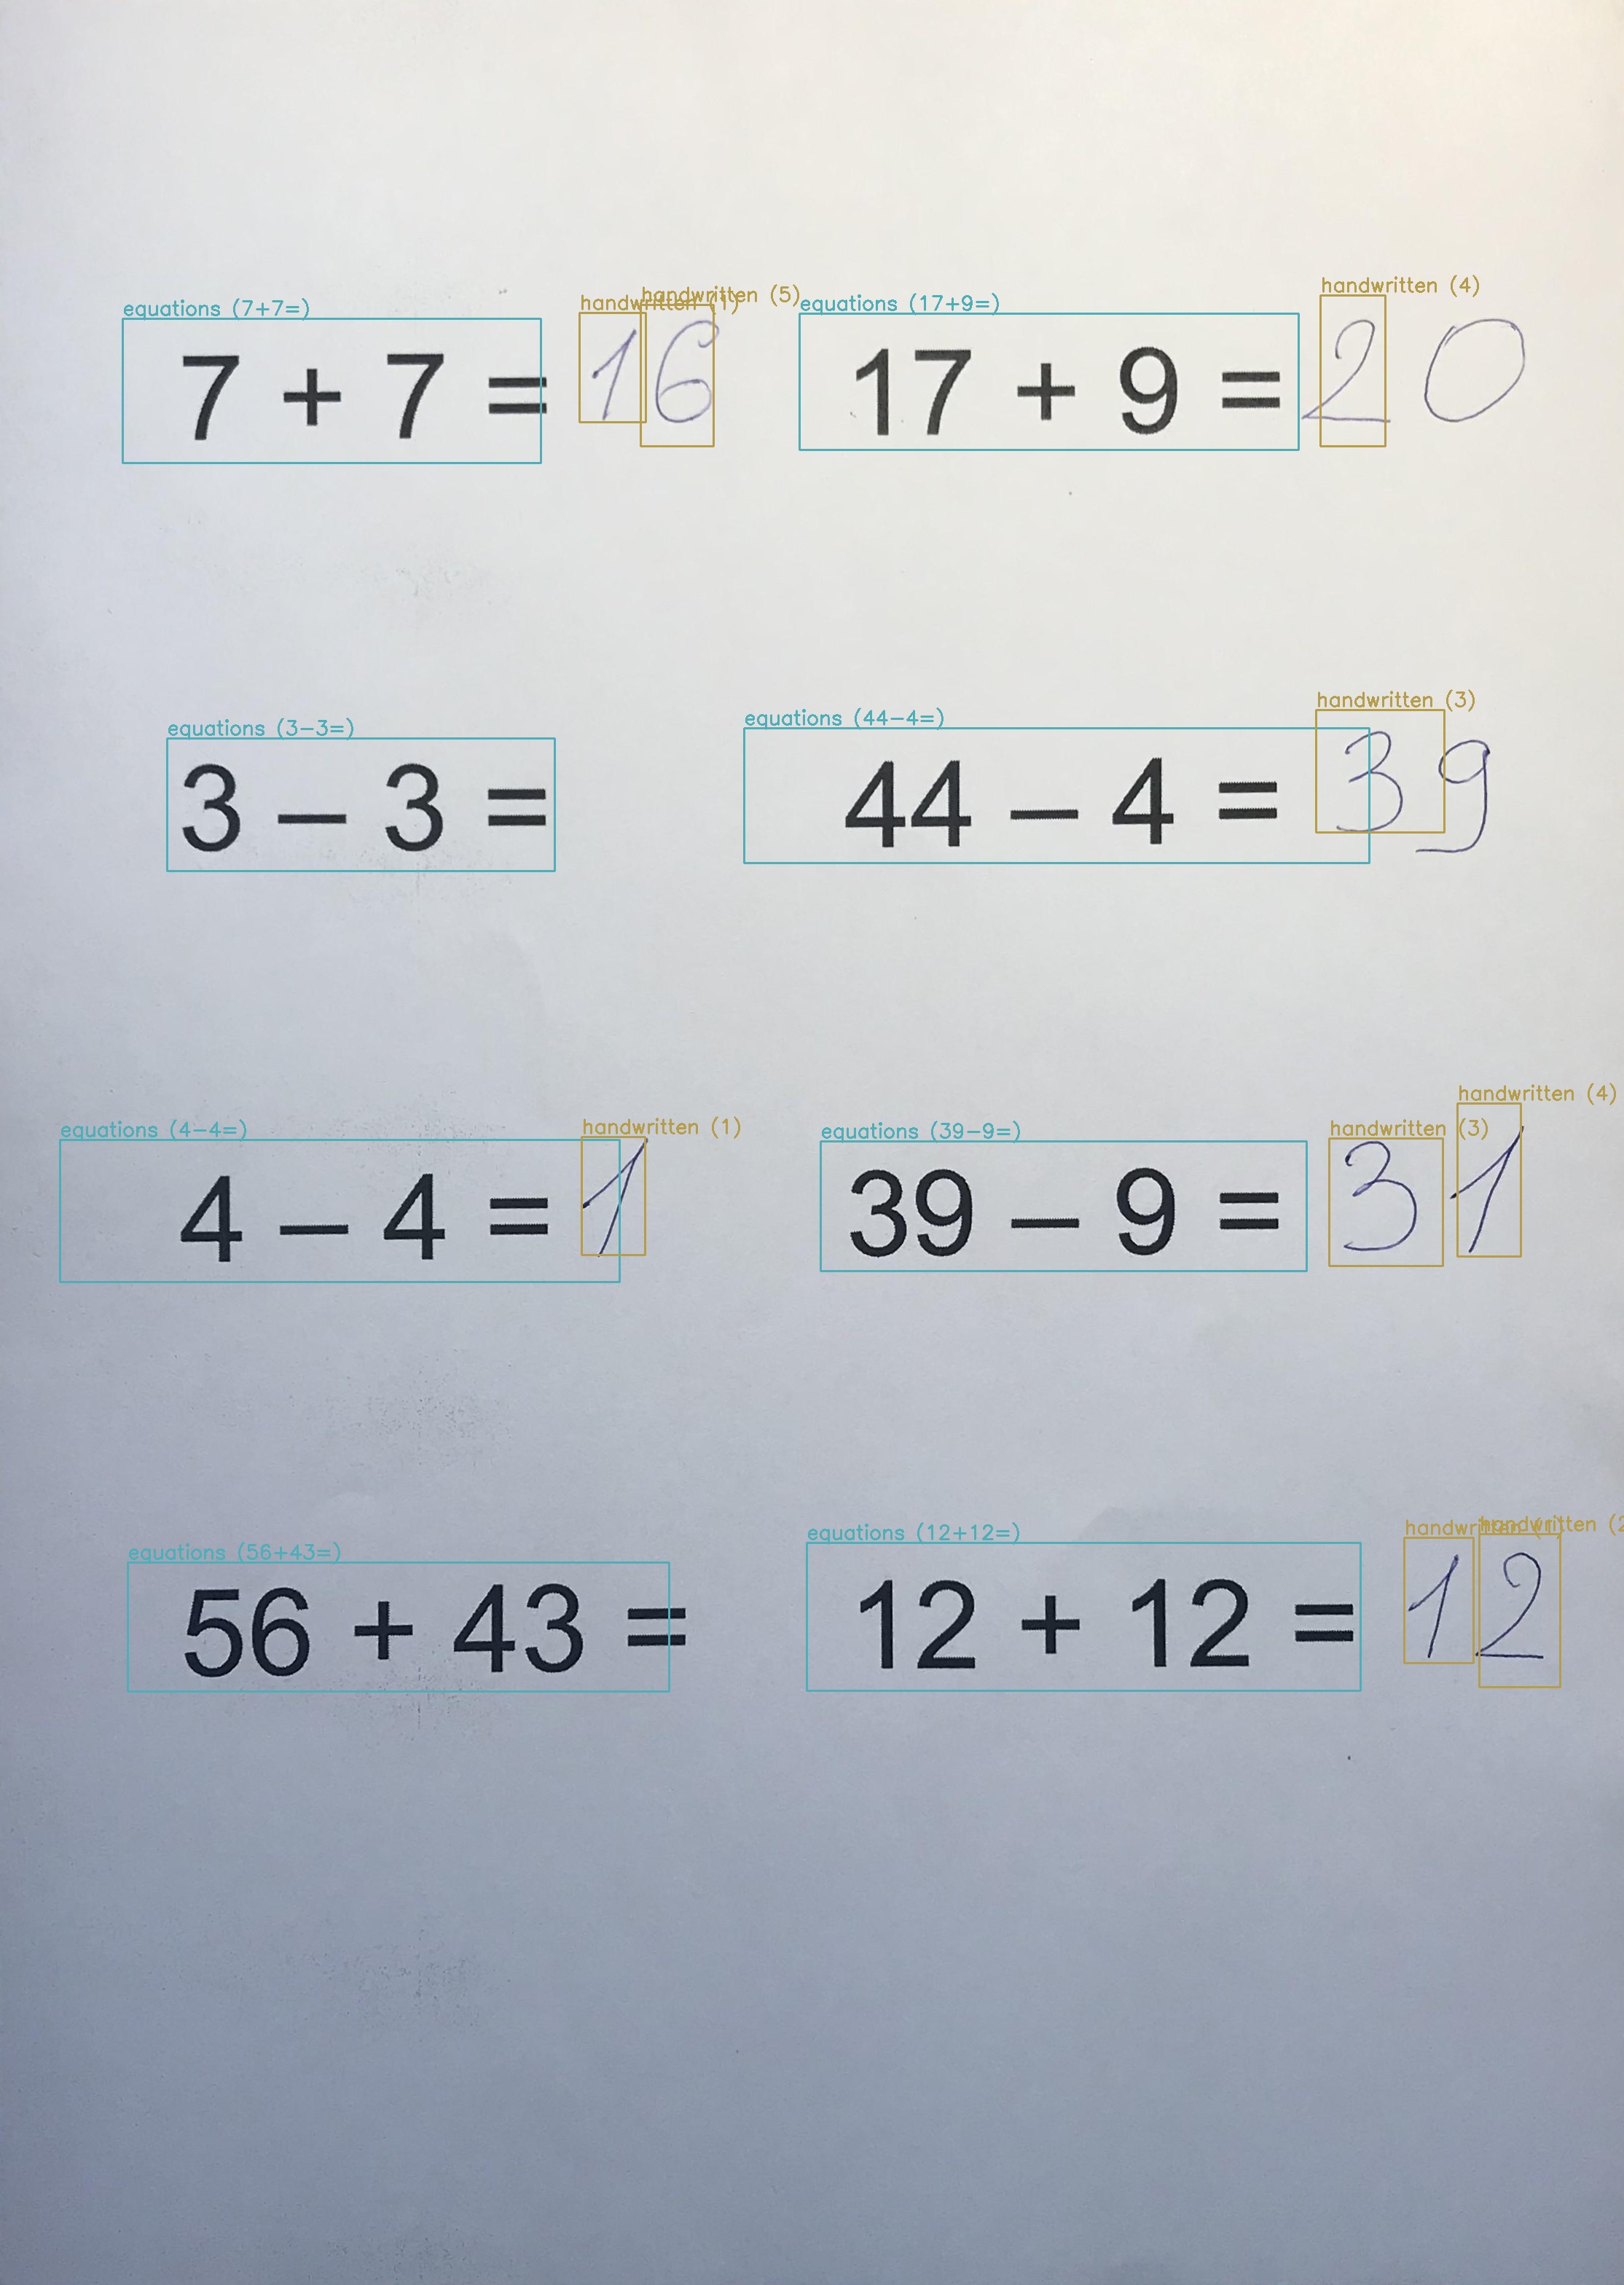 equations (7+7=) handwritten (1) handwritten (5) equations (17+9=) handwritten (4)
7 + 7 = 16 17 + 9 = 20
equations (3-3=) equations (44-4=) handwritten (3)
3 – 3 = 44 – 4 = 39
equations (4-4=) handwritten (1) equations (39-9=) handwritten (3) handwritten (4)
4 – 4 = 1 39 – 9 = 31
equations (56+43=) equations (12+12=) handwritten (1) handwritten (2
56 + 43 = 12 + 12 = 12